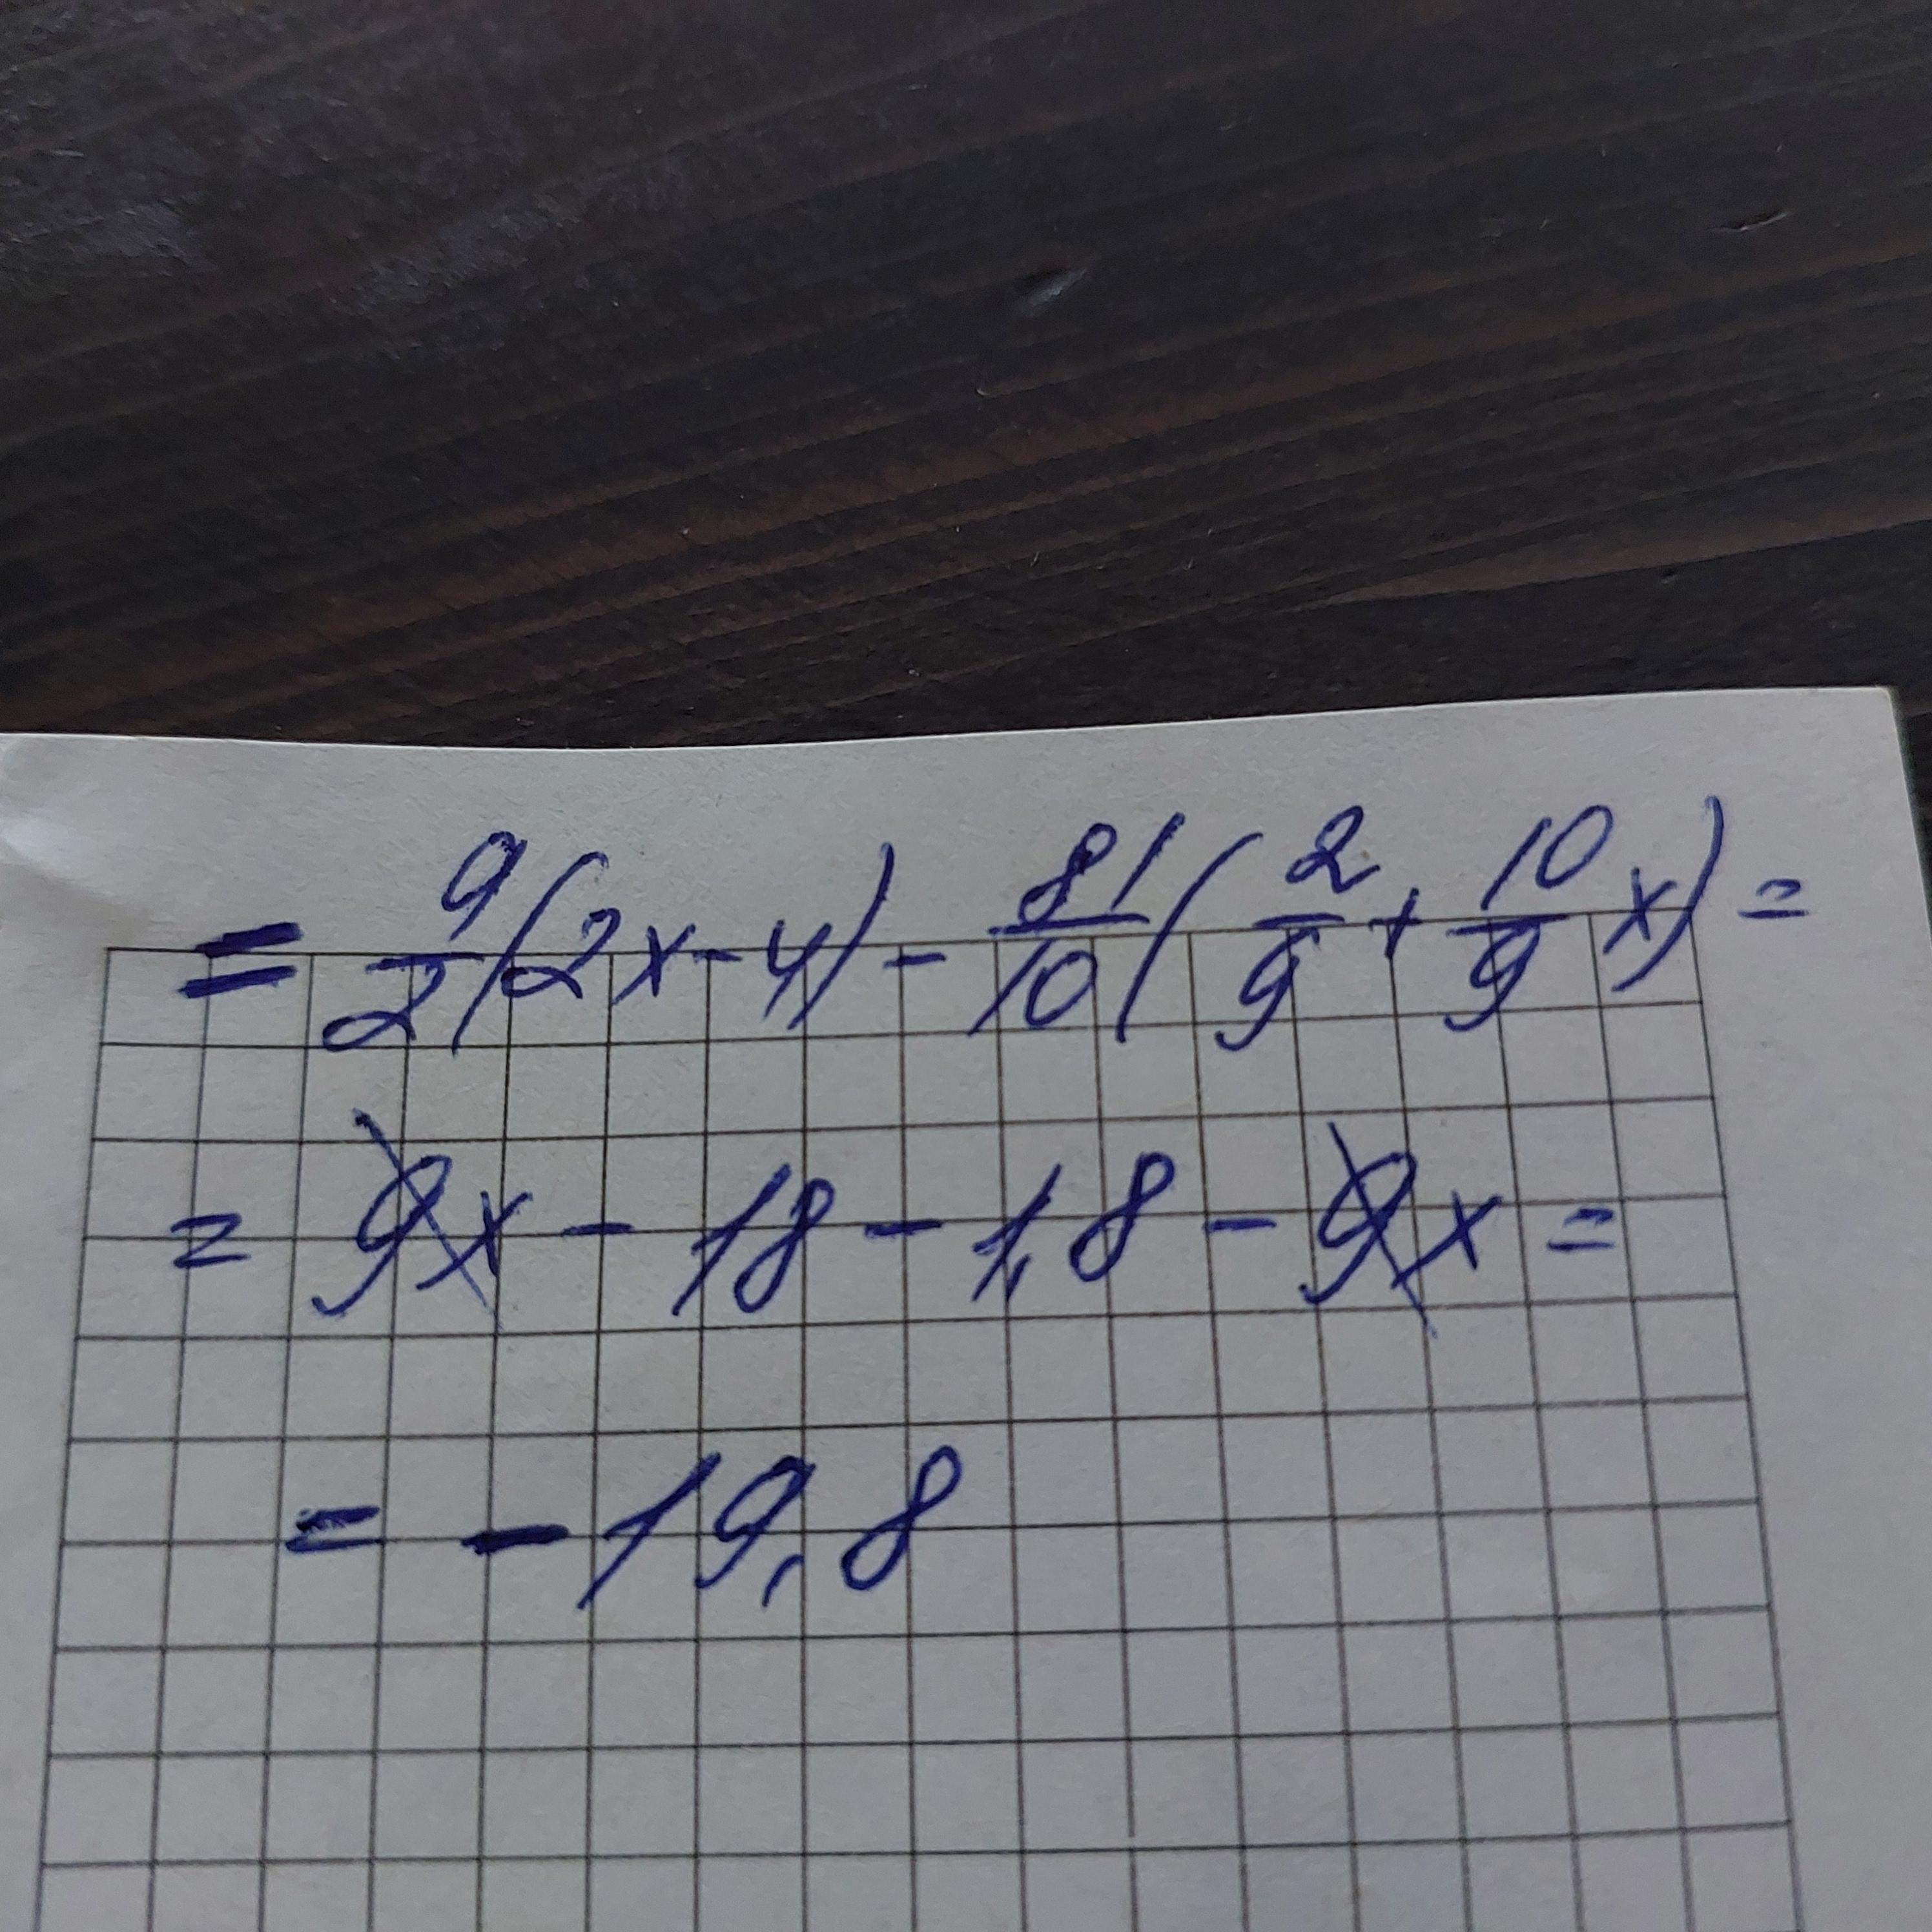 = 9/2(2x-4) - 81/10(2/9 + 10/9 x) =
= 9x - 18 - 1,8 - 9x =
= - 19,8